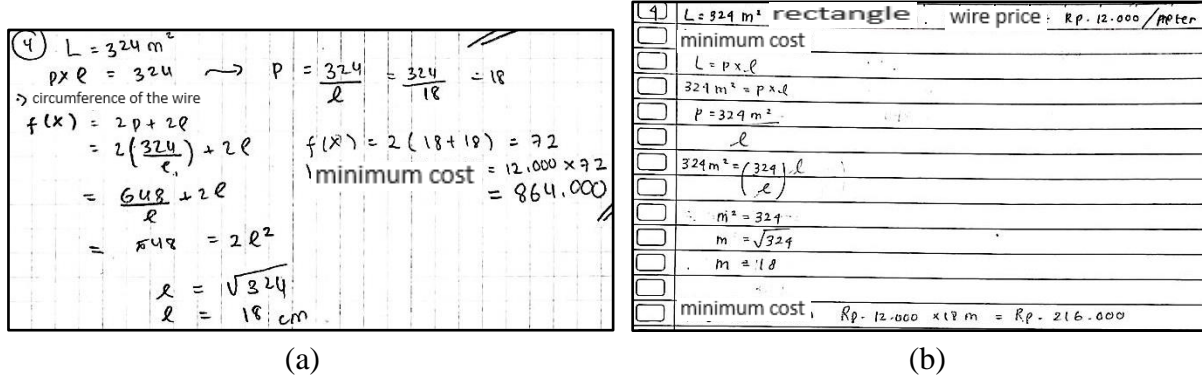 4 L = 324 m²
p x l = 324 ⟿ p = 324/l = 324/18 = 18
circumference of the wire
f(x) = 2p + 2l
= 2(324/l) + 2l
f(x) = 2(18+18) = 72
minimum cost = 12.000 x 72
= 864.000
= 648/l + 2l
= 648 = 2l²
l = √324
l = 18 cm
(a)
4 L = 324 m² rectangle . wire price : Rp. 12.000 / meter
minimum cost
L = p x l
324 m² = p x l
p = 324 m²
l
324 m² = (324/l) l
m² = 324
m = √324
m = 18
minimum cost , Rp. 12.000 x 18 m = Rp. 216.000
(b)